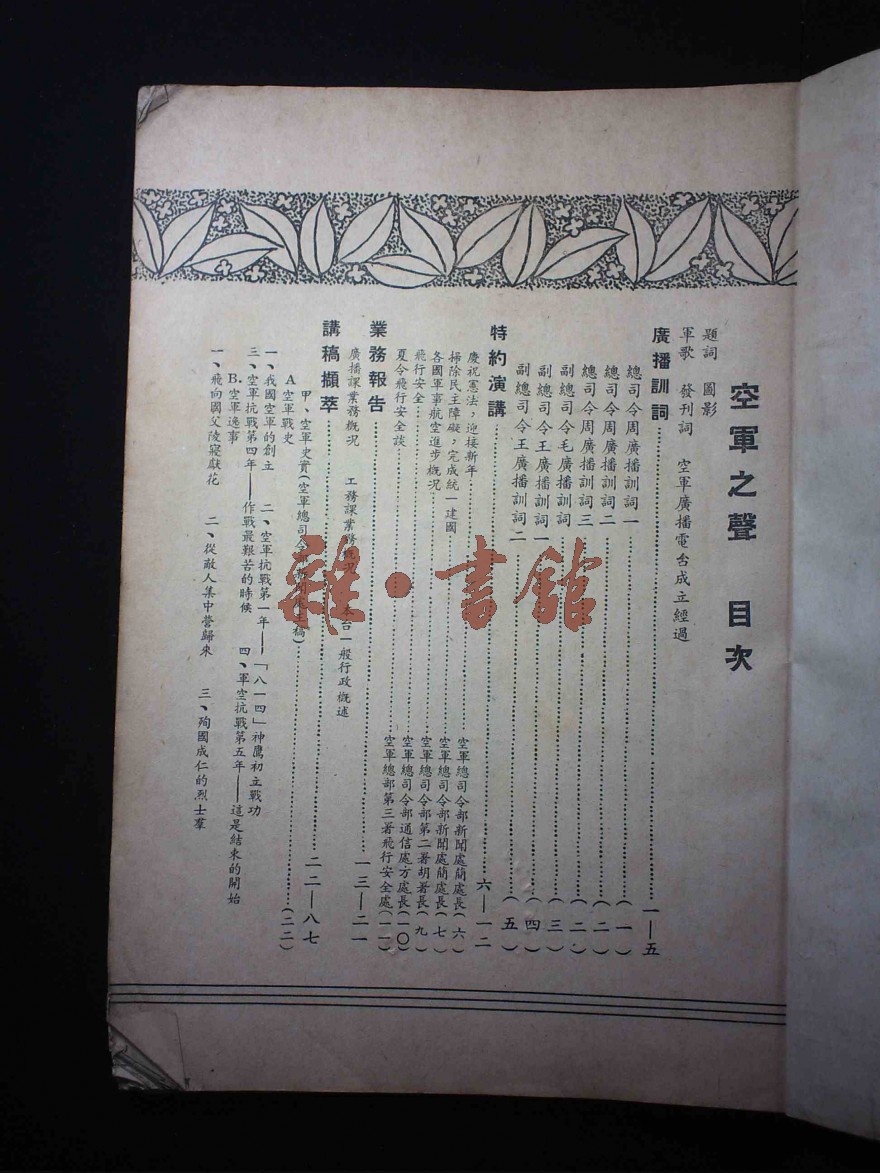 空軍之聲 目次
題詞 圖影
軍歌 發刊詞 空軍廣播電台成立經過
廣播訓詞……一—五
總司令周廣播訓詞一……(一)
總司令周廣播訓詞二……(二)
總司令周廣播訓詞三……(二)
副總司令毛廣播訓詞……(三)
副總司令王廣播訓詞一……(四)
副總司令王廣播訓詞二……(五)
特約演講……六—一二
慶祝憲法,迎接新年……空軍總司令部新聞處簡處長(六)
掃除民主障礙,完成統一建國……空軍總司令部新聞處簡處長(七)
各國軍事航空進步概況……空軍總司令部第二署胡署長(九)
飛行安全……空軍總司令部通信處方處長(一〇)
夏令飛行安全談……空軍總部第三署飛行安全處(一一)
業務報告……一三—二一
廣播課業務概況 工務課業務概況 本台一般行政概述
講稿擷萃……二二—八七
甲、空軍史實(空軍總司令部新聞處主稿)……(二二)
A 空軍戰史
一、我國空軍的創立 二、空軍抗戰第一年——「八一四」神鷹初立戰功
三、空軍抗戰第四年——作戰最艱苦的時候 四、軍空抗戰第五年——這是結束的開始
B. 空軍逸事
一、飛向國父陵寢獻花 二、從敵人集中營歸來 三、殉國成仁的烈士羣
雜·書館